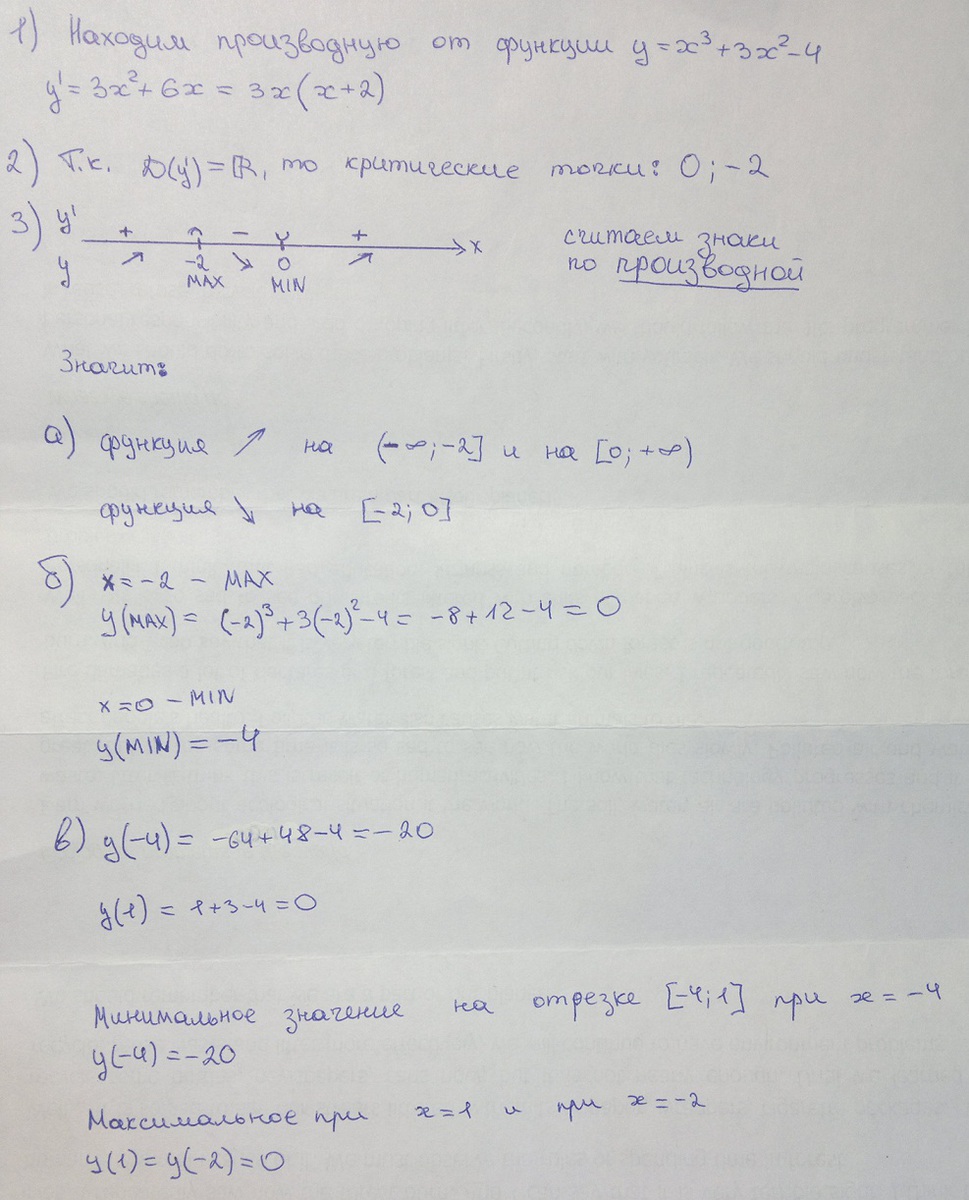 1) Находим производную от функции y = x³ + 3x² - 4
y' = 3x² + 6x = 3x(x+2)
2) Т.к. D(y') = ℝ, то критические точки: 0; -2
3) y' + - + x
y -2 0
MAX MIN
считаем знаки
по производной
Значит:
а) функция ↗ на (-∞; -2] и на [0; +∞)
функция ↘ на [-2; 0]
б) x = -2 - MAX
y(MAX) = (-2)³ + 3(-2)² - 4 = -8 + 12 - 4 = 0
x = 0 - MIN
y(MIN) = -4
в) y(-4) = -64 + 48 - 4 = -20
y(1) = 1 + 3 - 4 = 0
Минимальное значение на отрезке [-4; 1] при x = -4
y(-4) = -20
Максимальное при x = 1 и при x = -2
y(1) = y(-2) = 0